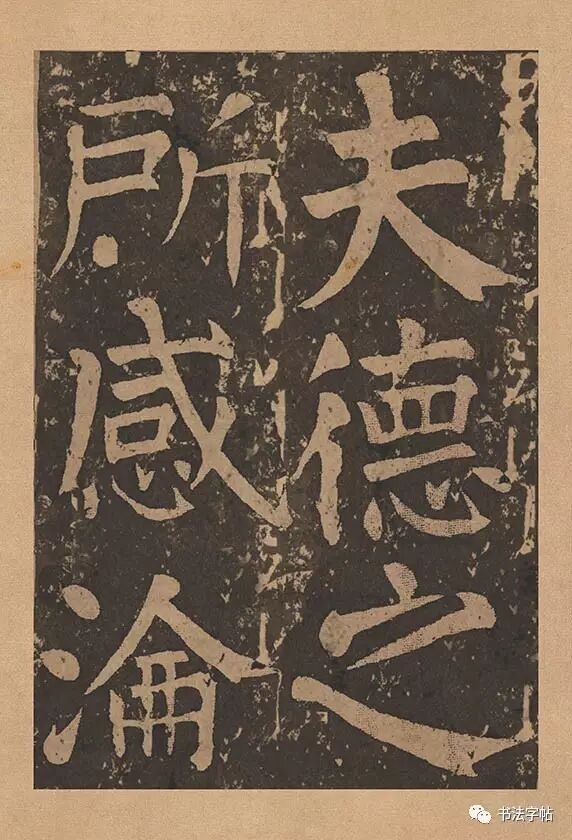 夫德之
所感淪
书法字帖